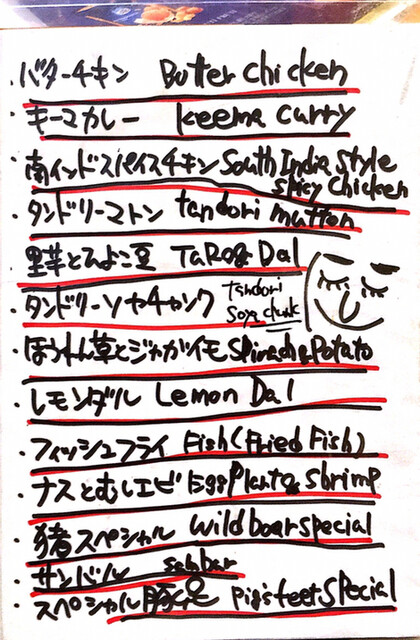 ・バターチキン Butter chicken
・キーマカレー keema curry
・南インドスパイスチキン South India style
spicy chicken
・タンドリーマトン tandori mutton
・里芋とひよこ豆 TaRo& Dal
・タンドリーソヤチャンク tandori
Soya chunk
・ほうれん草とジャガイモ Spinach&Potato
・レモンダル Lemon Dal
・フィッシュフライ Fish(Fried Fish)
・ナスとむしエビ Eggplant& shrimp
・猪スペシャル wild boar special
・サンバル sambar
・スペシャル豚足 pigsfeet special